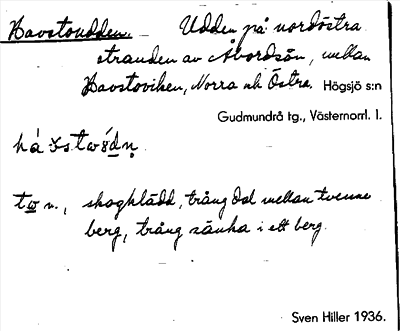 Havstoudden. – Udden på nordöstra
stranden av Åbordsön, mellan
Havstoviken, Norra och Östra. Högsjö s:n
Gudmundrå tg., Västernorrl. l.
skogklädd, trång dal mellan tvenne
berg, trång sänka i ett berg.
Sven Hiller 1936.